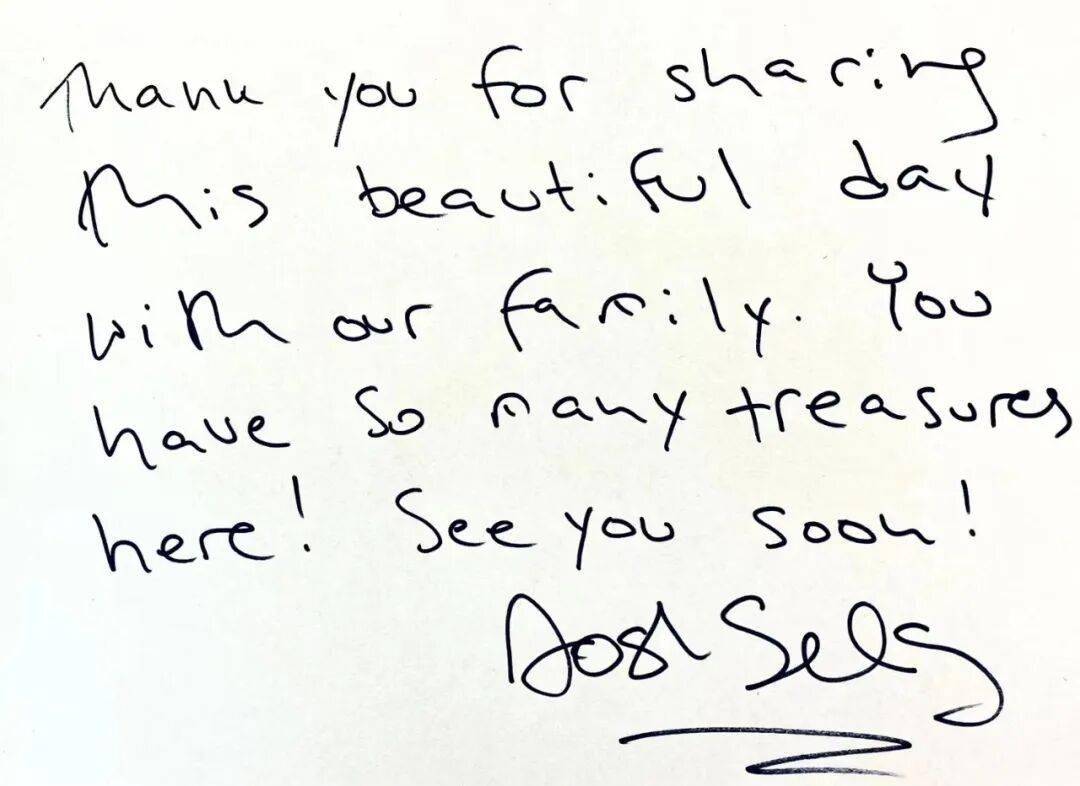 Thank you for sharing
this beautiful day
with our family. You
have so many treasures
here! See you soon!